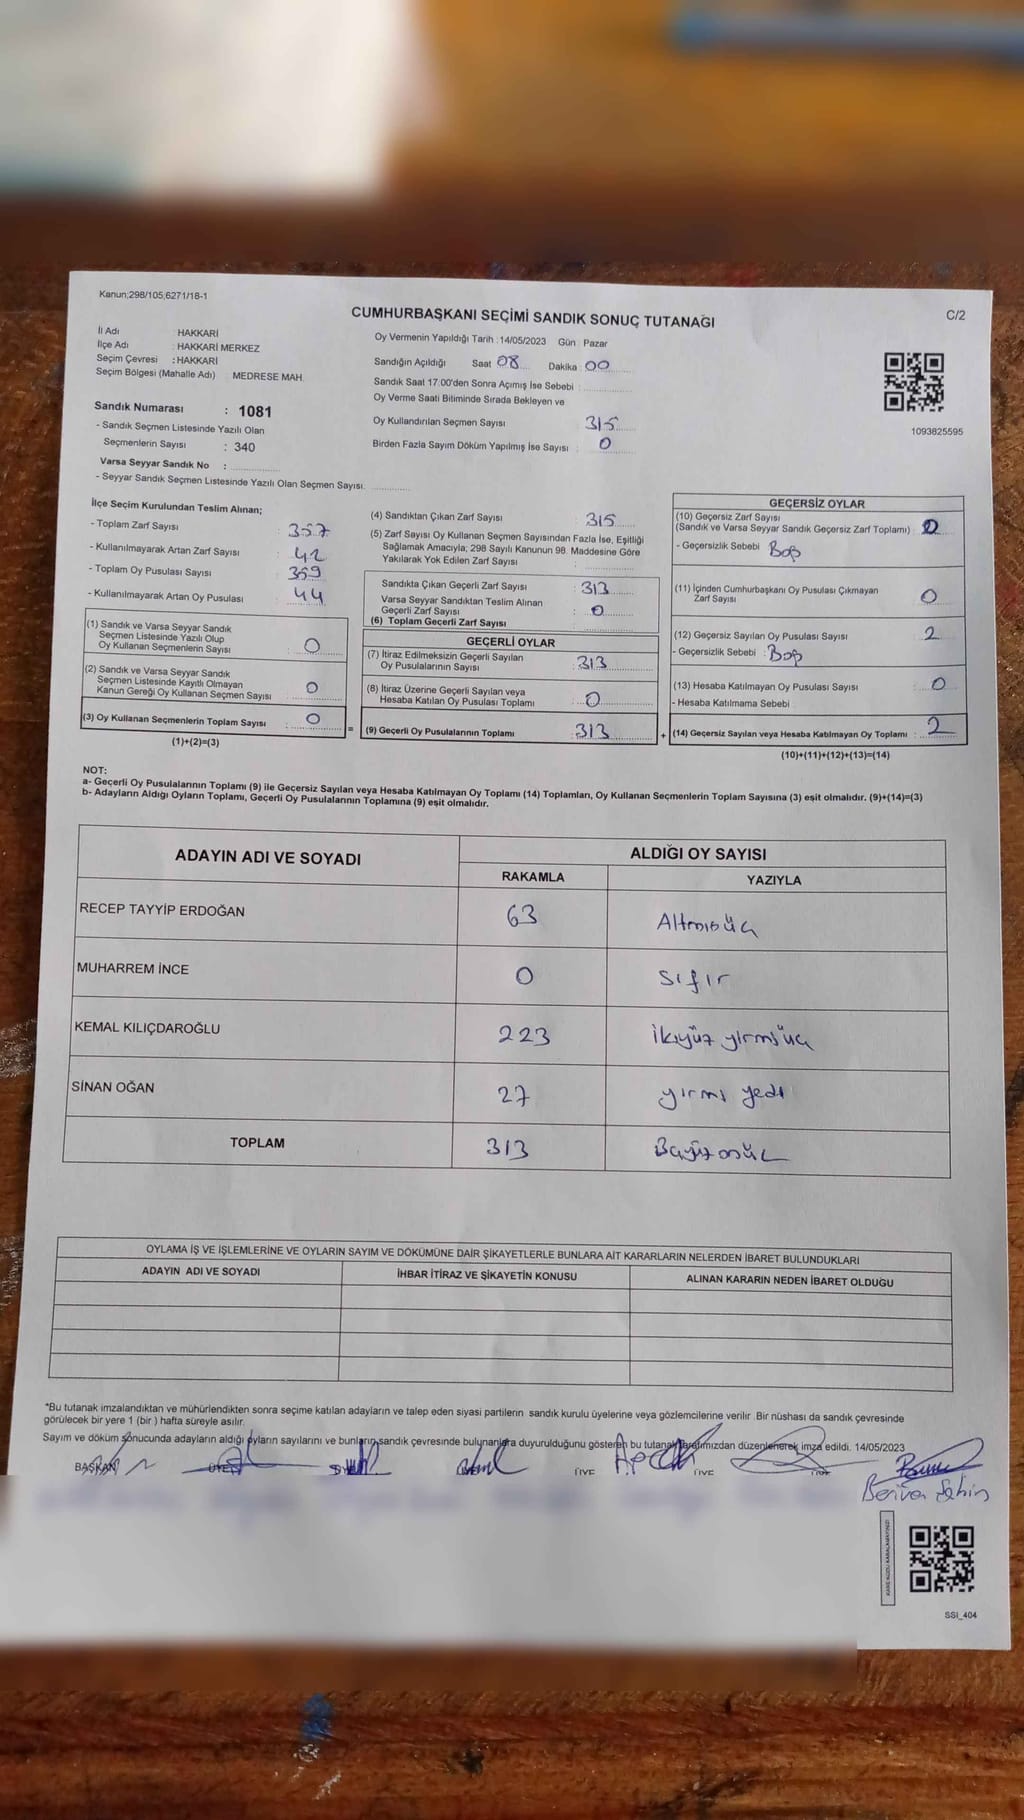 Kanun;298/105;6271/18-1
CUMHURBAŞKANI SEÇİMİ SANDIK SONUÇ TUTANAĞI
C/2
İl Adı : HAKKARİ
İlçe Adı : HAKKARİ MERKEZ
Seçim Çevresi : HAKKARİ
Seçim Bölgesi (Mahalle Adı) : MEDRESE MAH.
Sandık Numarası : 1081
- Sandık Seçmen Listesinde Yazılı Olan
Seçmenlerin Sayısı : 340
Varsa Seyyar Sandık No :
- Seyyar Sandık Seçmen Listesinde Yazılı Olan Seçmen Sayısı.
Oy Vermenin Yapıldığı Tarih : 14/05/2023 Gün : Pazar
Sandığın Açıldığı Saat 08 Dakika 00
Sandık Saat 17.00'den Sonra Açımış İse Sebebi :
Oy Verme Saati Bitiminde Sırada Bekleyen ve
Oy Kullandırılan Seçmen Sayısı : 315
Birden Fazla Sayım Döküm Yapılmış İse Sayısı : 0
1093825595
İlçe Seçim Kurulundan Teslim Alınan;
- Toplam Zarf Sayısı : 357
- Kullanılmayarak Artan Zarf Sayısı : 42
- Toplam Oy Pusulası Sayısı : 359
- Kullanılmayarak Artan Oy Pusulası : 44
(1) Sandık ve Varsa Seyyar Sandık
Seçmen Listesinde Yazılı Olup
Oy Kullanan Seçmenlerin Sayısı : 0
(2) Sandık ve Varsa Seyyar Sandık
Seçmen Listesinde Kayıtlı Olmayan
Kanun Gereği Oy Kullanan Seçmen Sayısı : 0
(3) Oy Kullanan Seçmenlerin Toplam Sayısı : 0
(1)+(2)=(3)
(4) Sandıktan Çıkan Zarf Sayısı : 315
(5) Zarf Sayısı Oy Kullanan Seçmen Sayısından Fazla İse, Eşitliği
Sağlamak Amacıyla; 298 Sayılı Kanunun 98. Maddesine Göre
Yakılarak Yok Edilen Zarf Sayısı :
Sandıkta Çıkan Geçerli Zarf Sayısı : 313
Varsa Seyyar Sandıktan Teslim Alınan
Geçerli Zarf Sayısı : 0
(6) Toplam Geçerli Zarf Sayısı :
GEÇERLİ OYLAR
(7) İtiraz Edilmeksizin Geçerli Sayılan
Oy Pusulalarının Sayısı : 313
(8) İtiraz Üzerine Geçerli Sayılan veya
Hesaba Katılan Oy Pusulası Toplamı : 0
= (9) Geçerli Oy Pusulalarının Toplamı : 313
GEÇERSİZ OYLAR
(10) Geçersiz Zarf Sayısı
(Sandık ve Varsa Seyyar Sandık Geçersiz Zarf Toplamı) :
- Geçersizlik Sebebi : Boş
(11) İçinden Cumhurbaşkanı Oy Pusulası Çıkmayan
Zarf Sayısı : 0
(12) Geçersiz Sayılan Oy Pusulası Sayısı : 2
- Geçersizlik Sebebi : Boş
(13) Hesaba Katılmayan Oy Pusulası Sayısı : 0
- Hesaba Katılmama Sebebi :
+ (14) Geçersiz Sayılan veya Hesaba Katılmayan Oy Toplamı : 2
(10)+(11)+(12)+(13)=(14)
NOT:
a- Geçerli Oy Pusulalarının Toplamı (9) ile Geçersiz Sayılan veya Hesaba Katılmayan Oy Toplamı (14) Toplamları, Oy Kullanan Seçmenlerin Toplam Sayısına (3) eşit olmalıdır. (9)+(14)=(3)
b- Adayların Aldığı Oyların Toplamı, Geçerli Oy Pusulalarının Toplamına (9) eşit olmalıdır.
ADAYIN ADI VE SOYADI ALDIĞI OY SAYISI
RAKAMLA YAZIYLA
RECEP TAYYİP ERDOĞAN 63 Altmışüç
MUHARREM İNCE 0 Sıfır
KEMAL KILIÇDAROĞLU 223 ikiyüz yirmiüç
SİNAN OĞAN 27 yirmi yedi
TOPLAM 313
OYLAMA İŞ VE İŞLEMLERİNE VE OYLARIN SAYIM VE DÖKÜMÜNE DAİR ŞİKAYETLERLE BUNLARA AİT KARARLARIN NELERDEN İBARET BULUNDUKLARI
ADAYIN ADI VE SOYADI İHBAR İTİRAZ VE ŞİKAYETİN KONUSU ALINAN KARARIN NEDEN İBARET OLDUĞU
*Bu tutanak imzalandıktan ve mühürlendikten sonra seçime katılan adayların ve talep eden siyasi partilerin sandık kurulu üyelerine veya gözlemcilerine verilir. Bir nüshası da sandık çevresinde
görülecek bir yere 1 (bir ) hafta süreyle asılır.
Sayım ve döküm sonucunda adayların aldığı oyların sayılarını ve bunların sandık çevresinde bulunanlara duyurulduğunu gösteren bu tutanak tarafımızdan düzenlenerek imza edildi. 14/05/2023
BAŞKAN ÜYE ÜYE ÜYE
Berivan Şahin
SSI_404